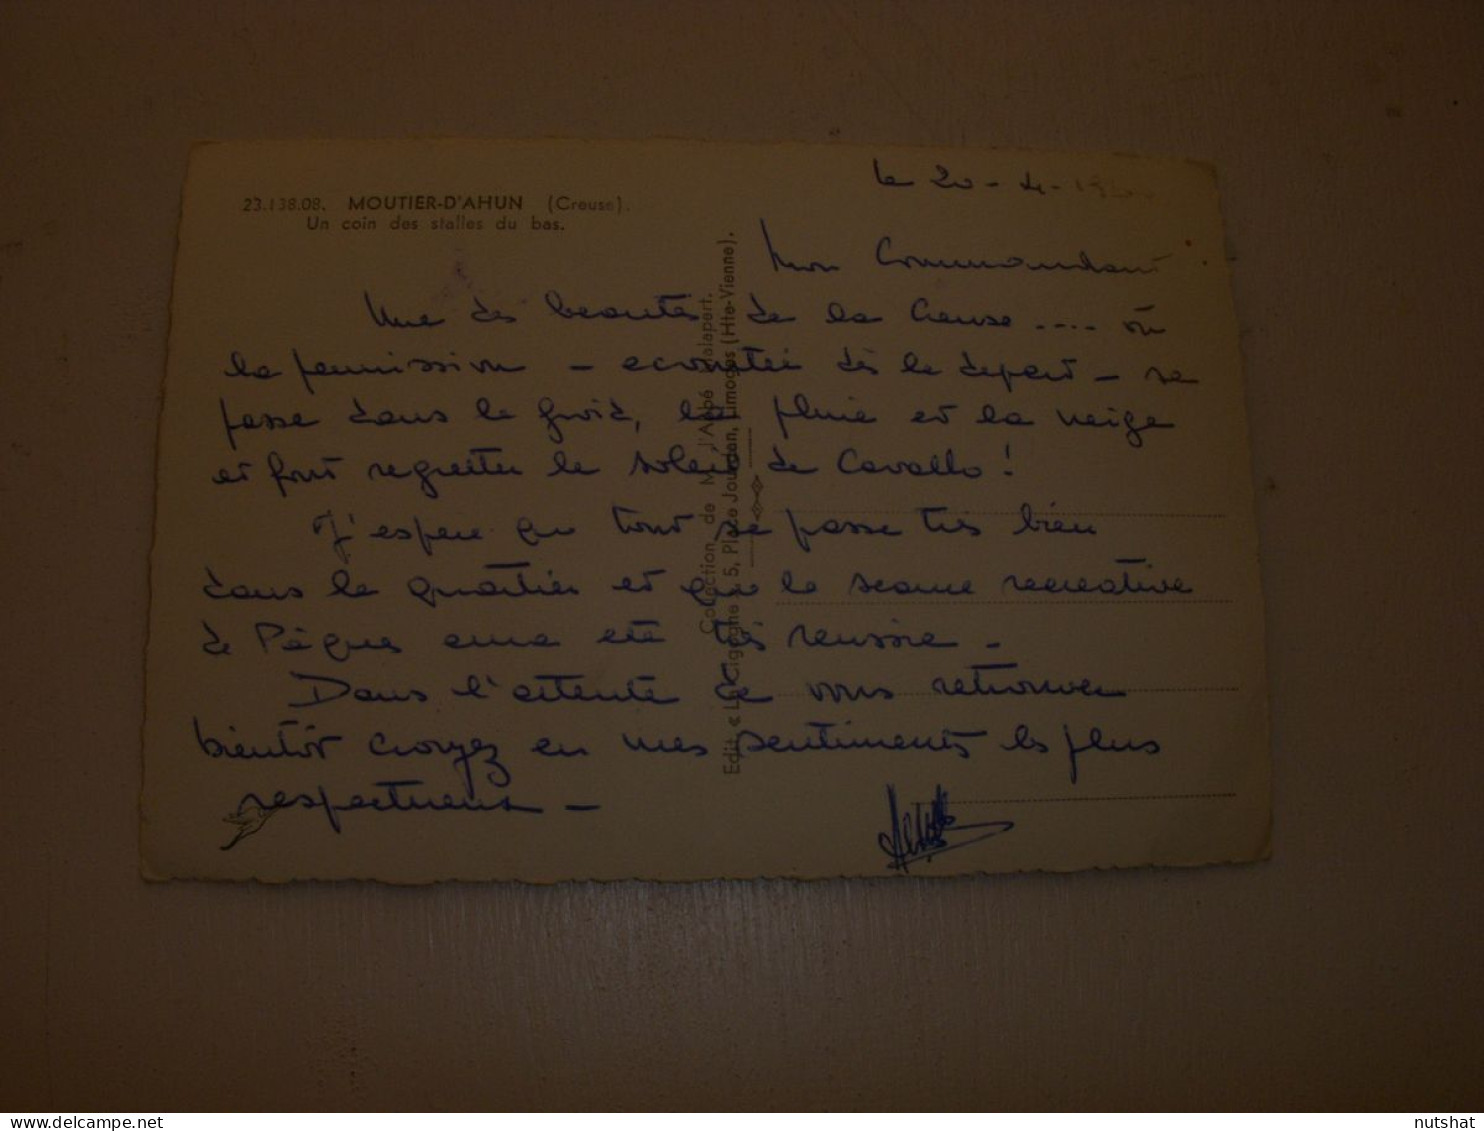 le 20-4-
23.138.08. MOUTIER-D'AHUN (Creuse).
Un coin des stalles du bas.
Mon Commandant
Une des beautés de la Creuse .... où
la permission - ecourtée dès le depart - se
passe dans le froid, la pluie et la neige
et font regretter le soleil de Cavallo !
J'espere que tout se passe très bien
dans le quartier et que la seance recreative
de Pâques aura été très reussie -
Dans l'attente de vous retrouver
bientôt croyez en mes sentiments les plus
respectueux -
Collection de M. l'Abbé Malapert.
Edit. « La Cigogne », 5, Place Jourdan, Limoges (Hte-Vienne).
www.delcampe.net
nutshat